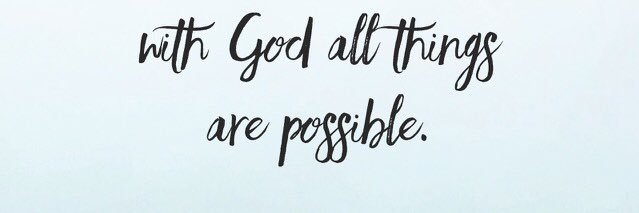 with God all things
are possible.